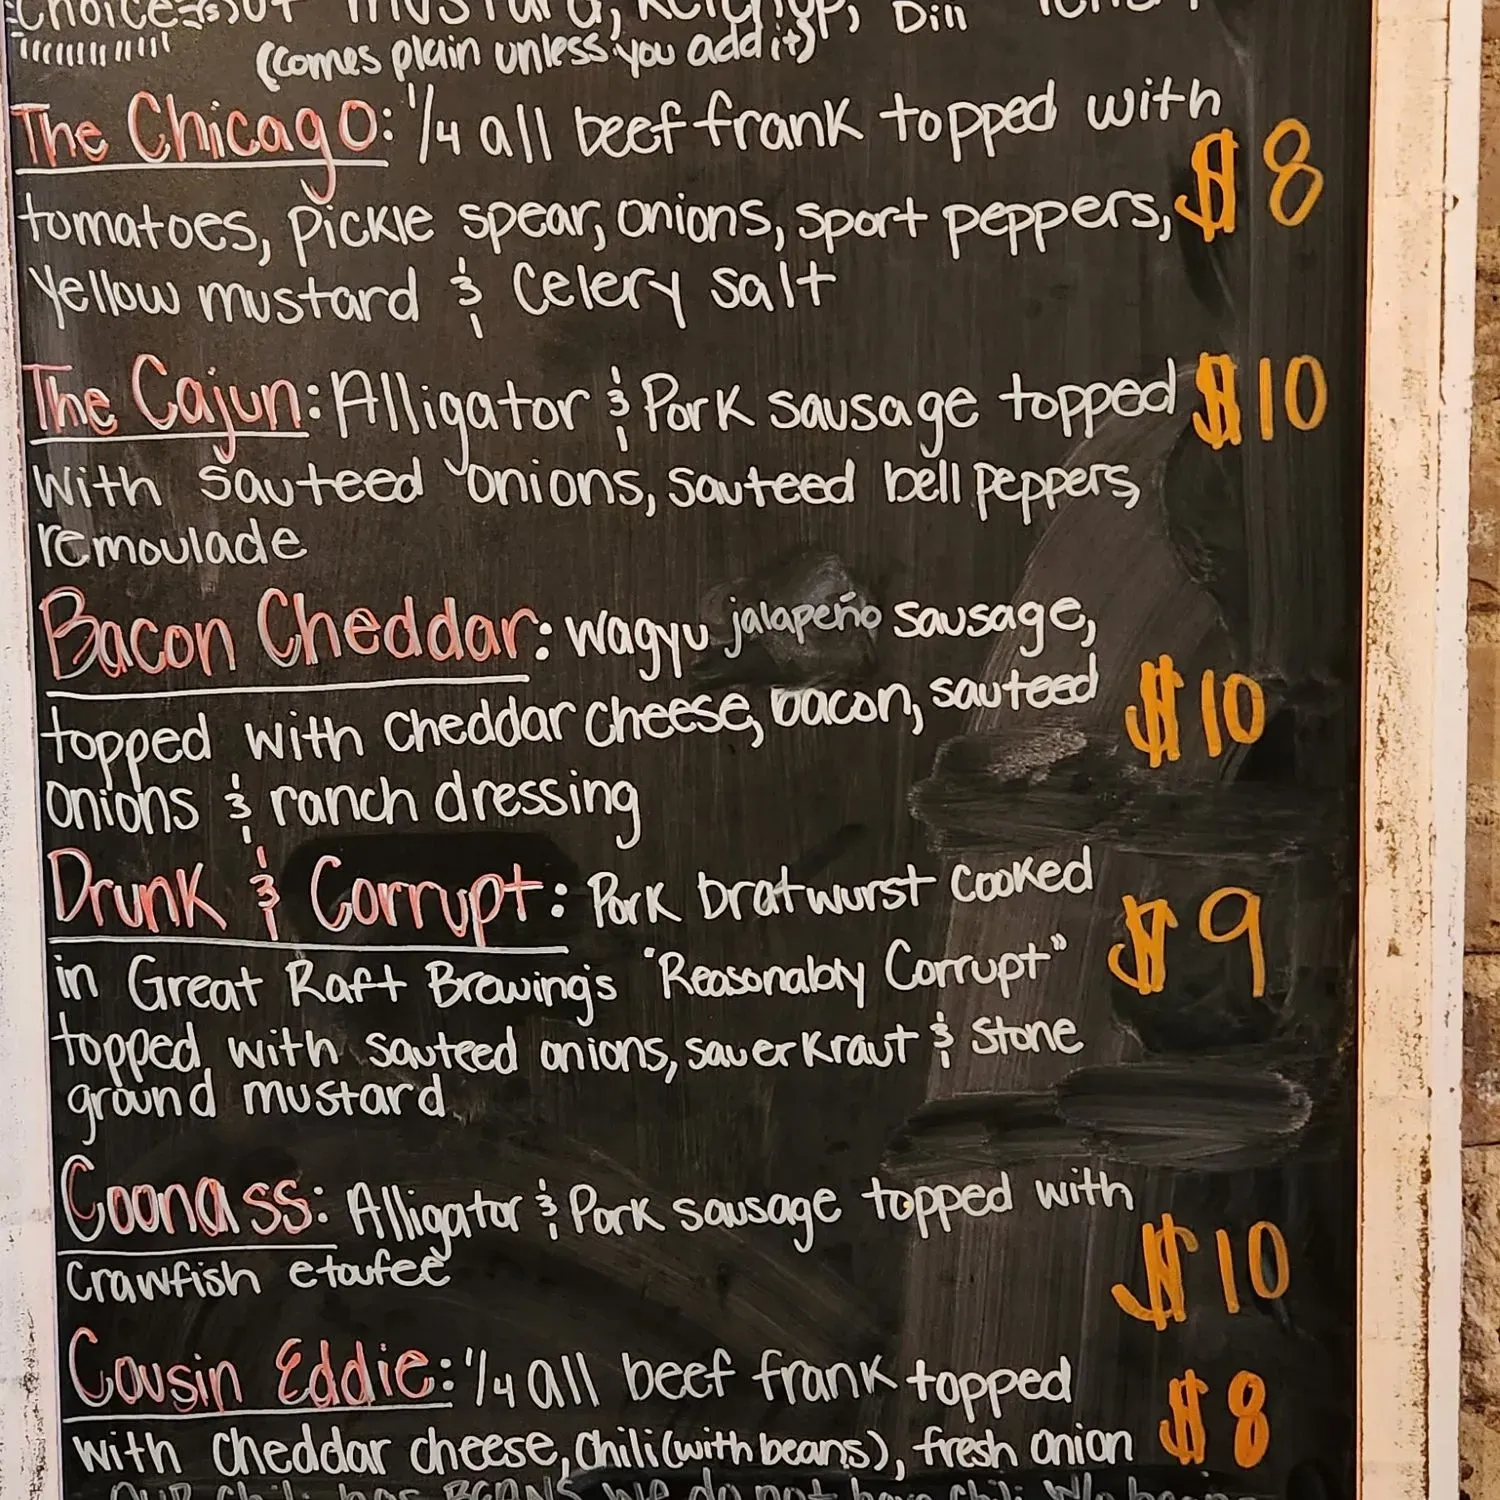 Choice(s) of mustard, ketchup, Dill
(comes plain unless you add it)
The Chicago: 1/4 all beef frank topped with $8
tomatoes, pickle spear, onions, sport peppers,
yellow mustard & celery salt
The Cajun: Alligator & Pork sausage topped $10
with sauteed onions, sauteed bell peppers,
remoulade
Bacon Cheddar: Wagyu jalapeño sausage,
topped with cheddar cheese, bacon, sauteed $10
onions & ranch dressing
Drunk & Corrupt: Pork bratwurst cooked $9
in Great Raft Brewing's "Reasonably Corrupt"
topped with sauteed onions, sauerkraut & stone
ground mustard
Coonass: Alligator & Pork sausage topped with $10
crawfish etoufee
Cousin Eddie: 1/4 all beef frank topped $8
with cheddar cheese, chili (with beans), fresh onion
our chili has BEANS we do not have chili w/o